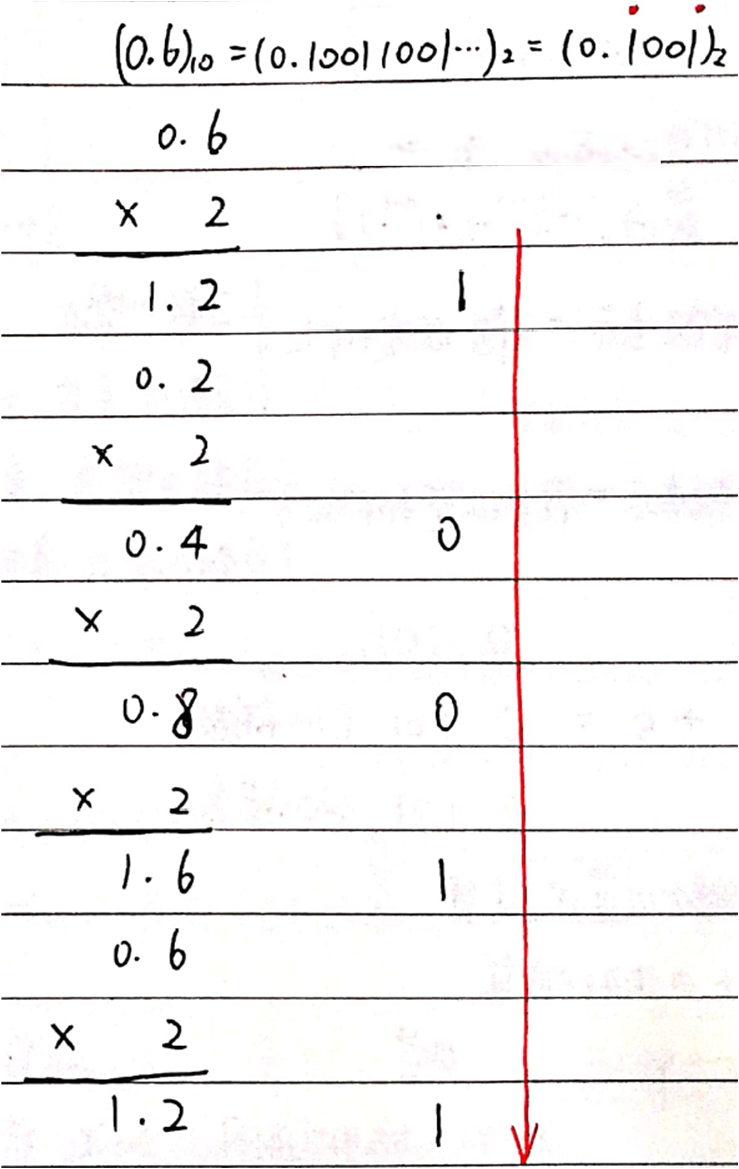 (0.6)₁₀ = (0.10011001···)₂ = (0.1̇001̇)₂
0.6
× 2
1.2 1
0.2
× 2
0.4 0
× 2
0.8 0
× 2
1.6 1
0.6
× 2
1.2 1